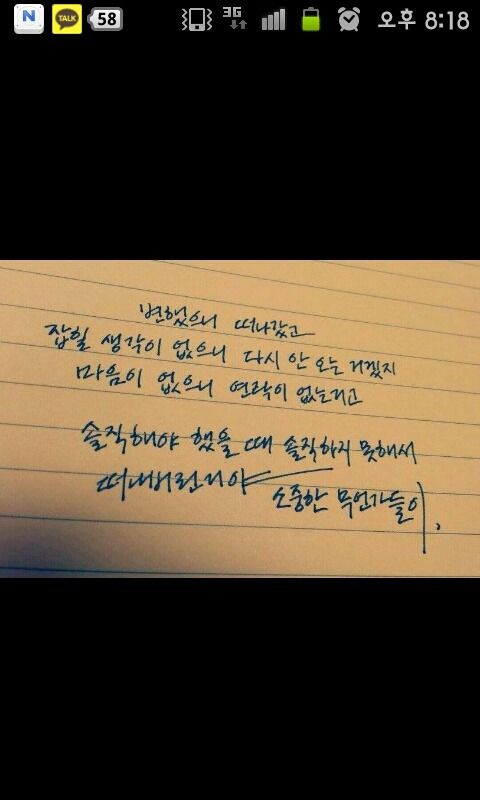 N TALK 58 3G 오후 8:18
변했으니 떠나갔고
잡힐 생각이 없으니 다시 안 오는 거겠지
마음이 없으니 연락이 없는거고
솔직해야 했을 때 솔직하지 못해서
떠나버린거야
소중한 무언가들이.